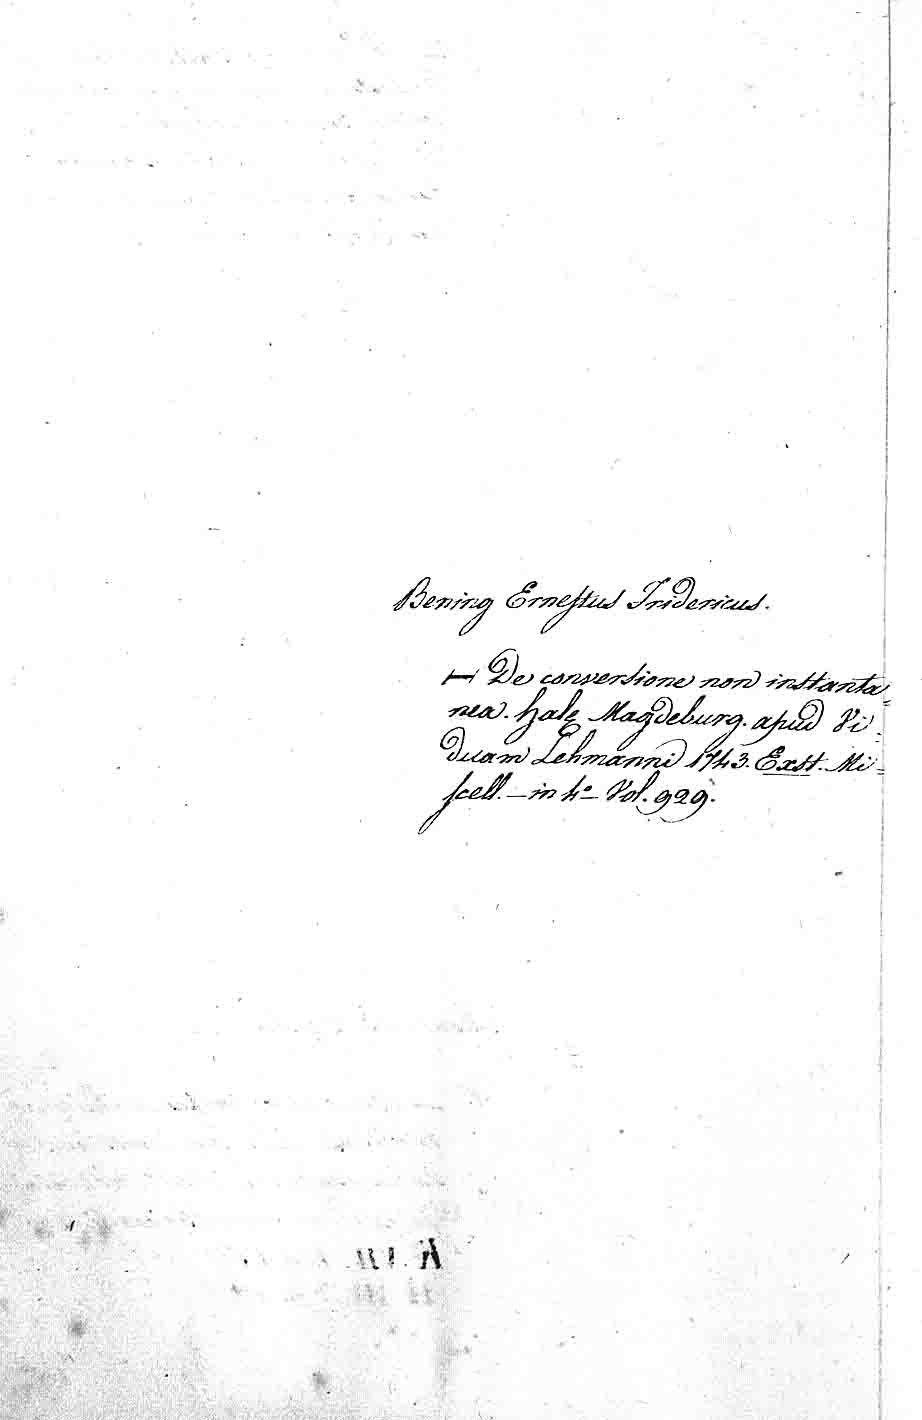 Bening Ernestus Fridericus.
— De conversione non instanta=
nea. Halę Magdeburg. apud Vi=
duam Lehmanni 1743. Exst. Mi=
scell. — in 4º — Vol. 929.